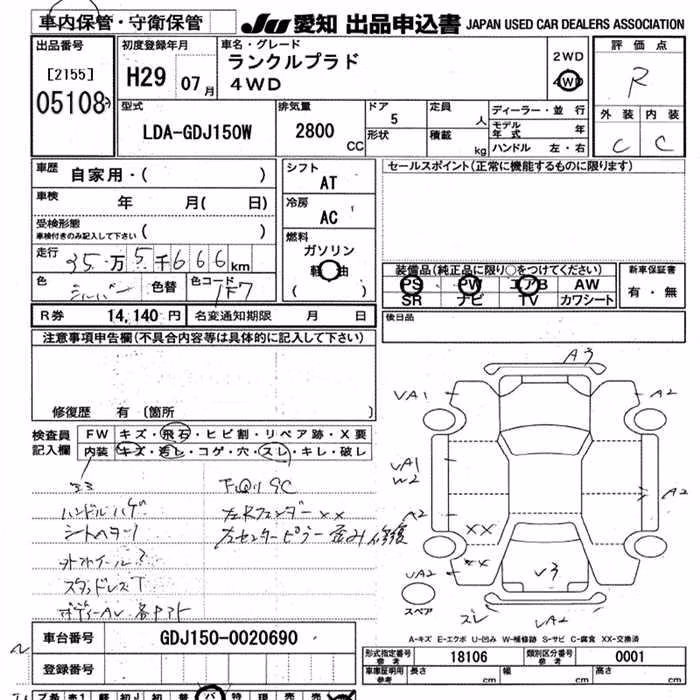 車内保管・守衛保管
JU 愛知 出品申込書 JAPAN USED CAR DEALERS ASSOCIATION
出品番号
[2155]
05108
初度登録年月
H29 07月
車名・グレード
ランクルプラド
4WD
2WD
4WD
評価点
R
外装 内装
C C
型式
LDA-GDJ150W
排気量
2800 CC
ドア 5
形状
定員 人
積載 kg
ディーラー・並行
モデル年式 年
ハンドル 左・右
車歴
自家用・( )
車検
年 月( 日)
受検形態
車検付きのみ記入して下さい ( )
走行
35万5千666km
色 シルバー 色替 色コード 1F7
シフト
AT
冷房
AC
燃料
ガソリン
軽油
( )
セールスポイント(正常に機能するものに限ります)
装備品(純正品に限り○をつけてください)
PS PW エアB AW
SR ナビ TV カワシート
新車保証書
有・無
R券 14,140円 名変通知期限 月 日
後日品
注意事項申告欄(不具合内容等は具体的に記入して下さい)
修復歴 有(箇所 )
検査員記入欄
FW キズ・飛石・ヒビ割・リペア跡・X要
内装 キズ・汚レ・コゲ・穴・スレ・キレ・破レ
ハンドルハゲ
シートヘタリ
左Rフェンダーxx
左センターピラー歪み修復
A3
VA1
A2
VA1
W2
A2
A2
XX
XX
VA2
V3
A2
スペア
スレ
VA2
A-キズ E-エクボ U-凹み W-補修跡 S-サビ C-腐食 XX-交換済
車台番号 GDJ150-0020690
登録番号
型式指定番号 参考 18106 類別区分番号 参考 0001
車庫証明用 参考 長さ cm 幅 cm 高さ cm